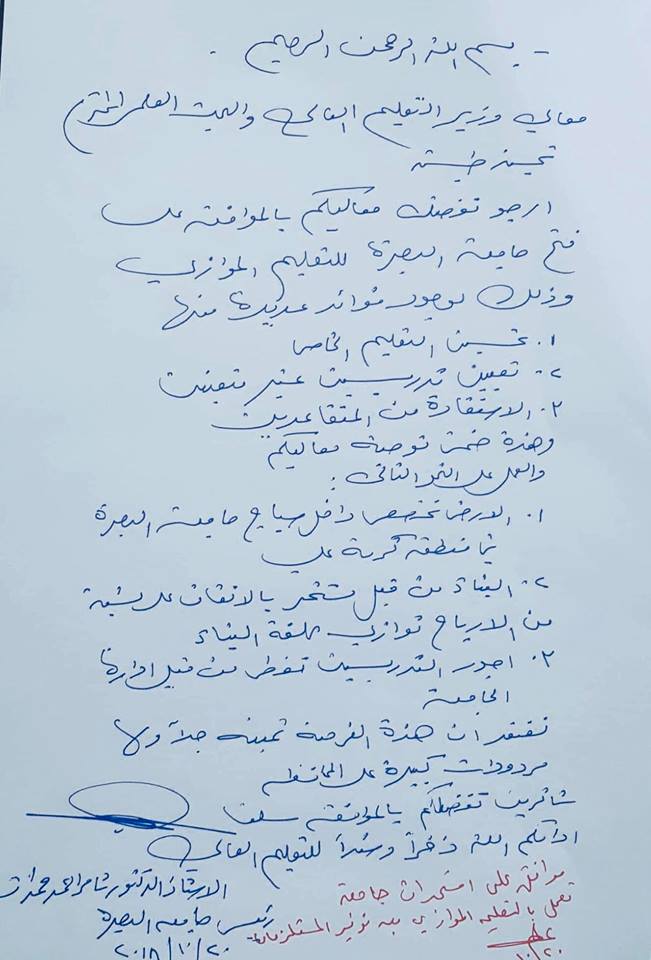 - بسم الله الرحمن الرحيم .
معالي وزير التعليم العالي والبحث العلمي المحترم
تحية طيبة
ارجو تفضل معاليكم بالموافقة على
فتح جامعة البصرة للتعليم الموازي
وذلك لوجود فوائد عديدة منها
١. تحسين التعليم الخاص
٢. تعيين تدريسيين
٣. الاستفادة من المتقاعدين
وهذه ضمن توصية معاليكم
والعمل على النحو التالي :
١. الارض تخصص داخل سياج جامعة البصرة
في منطقة كرمة علي
٢. البناء من قبل مستثمر بالاتفاق على نسبة
من الارباح توازي كلفة البناء
٣. اجور التدريسيين تغطى من قبل ادارة
الجامعة
نعتقد ان هذه الفرصة ثمينة جداً ولها
مردودات كبيرة على المحافظة
شاكرين تفضلكم بالموافقة سلفا
ادامكم الله ذخراً وسنداً للتعليم العالي
الاستاذ الدكتور ثامر احمد حمدان
رئيس جامعة البصرة
٢٠١٨/١٠/٢٠
موافق على استحداث جامعة
تعمل بالتعليم الموازي بعد توفير المستلزمات
١٠/٢٠